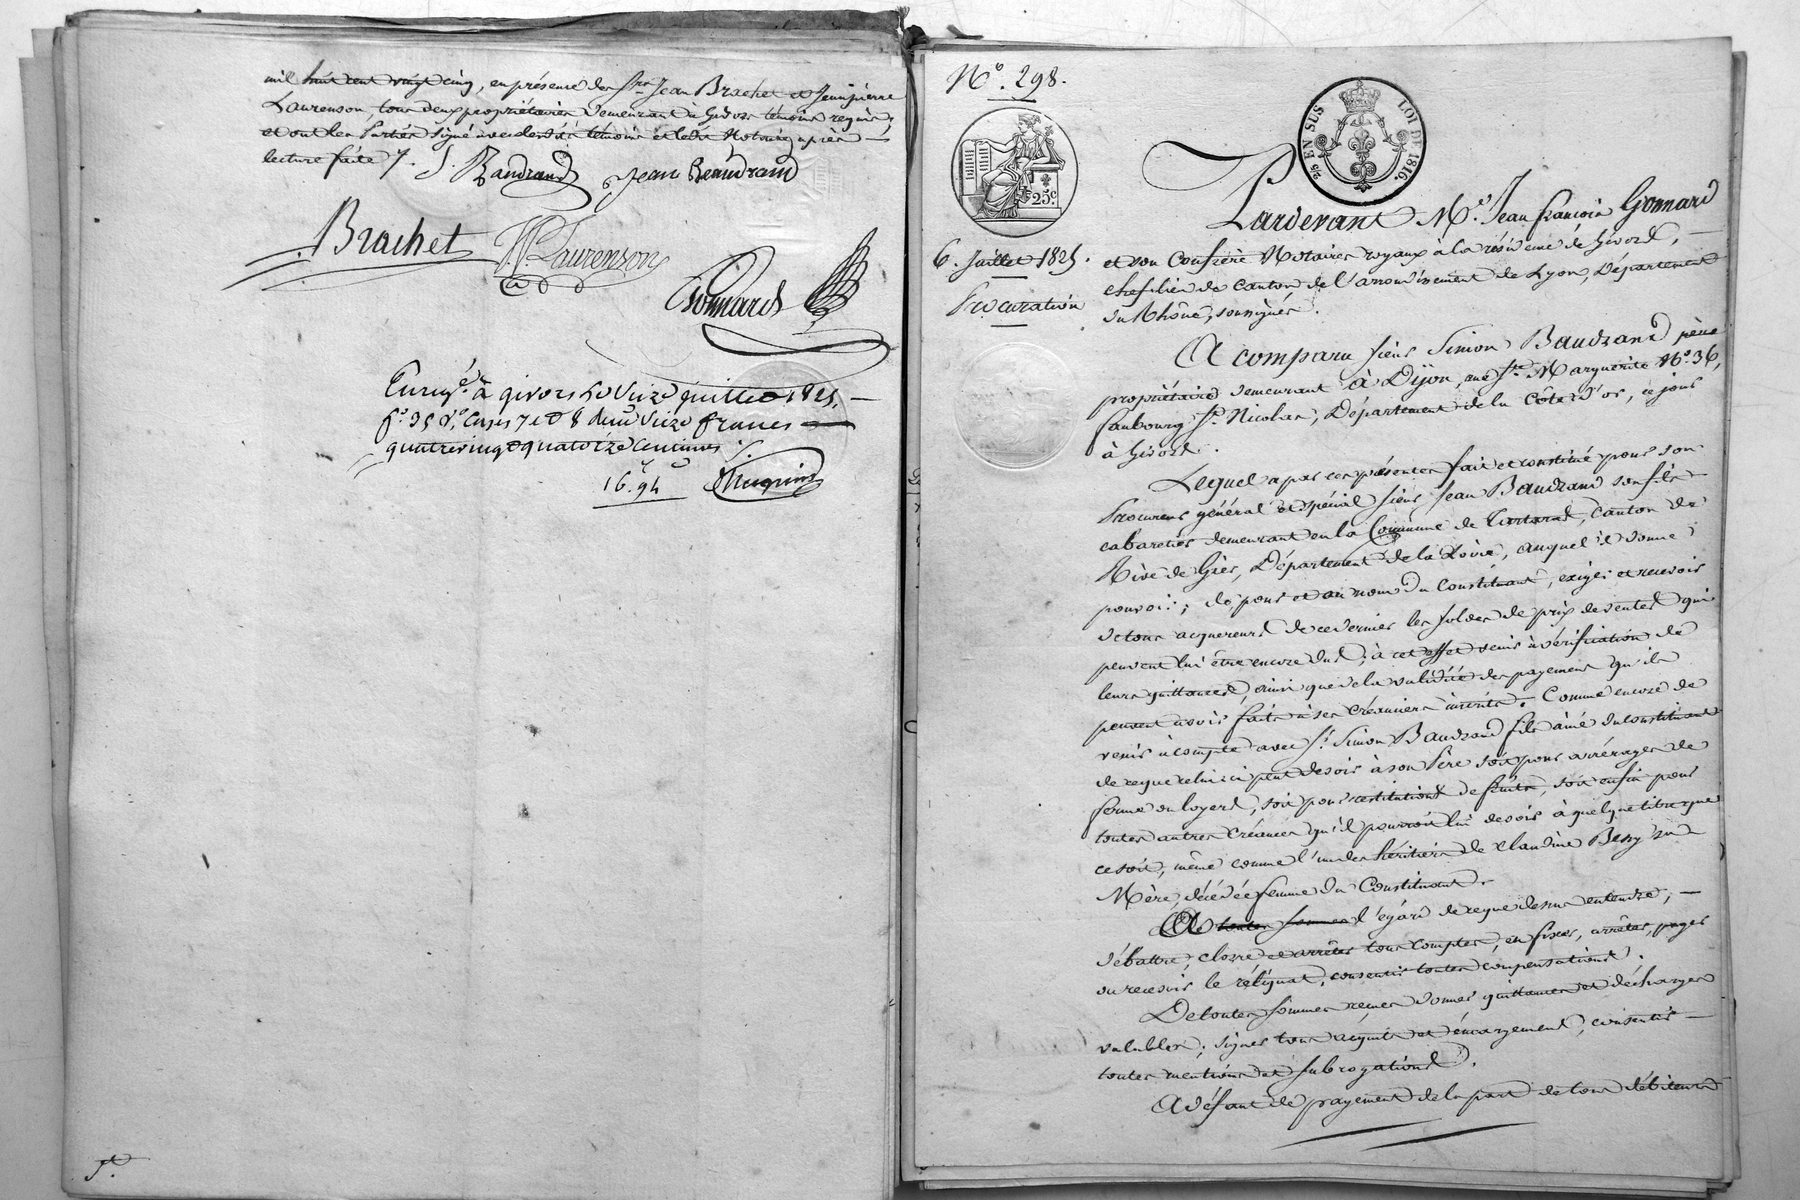 mil huit cent vingt cinq, en présence des Srs Jean Brachet et Jean pierre
Laurenson, tous deux propriétaires demeurant à Givors témoins requis,
et ont les Parties signé avec lesdits témoins et ledit Notaire après
lecture faite /.
S. Baudrand Jean Beaudrand
Brachet
P. Laurenson
Gonnard
Enregé à givors le seize juillet 1825,
fo. 35 Vo. Cases 7 et 8 seize francs
quatrevingt quatorze centimes /.
16. 94
No. 298.
25c.
25 EN SUS
LOI DE 1816.
6. Juillet 1825.
Procuration
Pardevant Me. Jean françois Gonnard
et son Confrère Notaires royaux à la résidence de Givors,
chef lieu de canton, de l'arrondissement de Lyon, Département
du Rhône, soussignés.
A comparu sieur Simon Baudrand père
propriétaire demeurant à Dijon, rue Ste. Marguerite No. 36,
faubourg St. Nicolas, Département de la Côte d'or, ce jour
à Givors.
Lequel a par ces présentes fait et constitué pour son
Procureur général et spécial sieur Jean Baudrand son fils
cabaretier demeurant en la Commune de Tartaras, canton de
Rive de Gier, Département de la Loire, auquel il donne
pouvoir; de pour et au nom du Constituant, exiger et recevoir
de tous acquereurs de ce dernier les soldes de prix de ventes qui
peuvent lui être encore dus; à cet effet venir à vérification de
leurs quittances, ainsi que de la validité des payements qu'ils
peuvent avoir faits à ses créanciers inscrits. Comme encore de
venir à compte avec Sr. Simon Baudrand fils ainé du constituant
de ce que celui ci peut devoir à son Père soit pour arrérages de
ferme ou loyers, soit pour restitutions de fruits, soit enfin pour
toutes autres créances qu'il pourroit lui devoir à quelque titre que
ce soit, même comme l'un des héritiers de Claudine Bessy sa
Mère, décédée femme du Constituant.
A toutes sommes l'égard de ce que dessus entendre,
débattre, clorre et arrêter tous comptes, en fixer, arrêter, payer
ou recevoir le réliquat, consentir toutes compensations.
De toutes sommes reçues donner quittances et décharges
valables; signer tous acquits et émargements, consentir
toutes mentions et subrogations.
A défaut de payement de la part de tous débiteurs